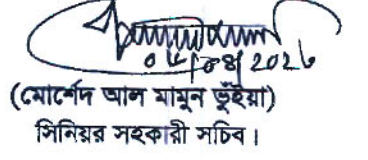 ০৮/০৪/২০২৬
(মোর্শেদ আল মামুন ভূঁইয়া)
সিনিয়র সহকারী সচিব।